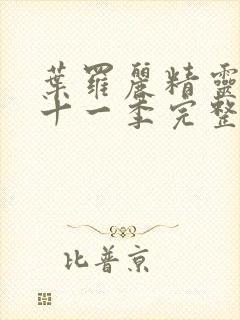 葉羅麗精靈
十一季完整
比普京